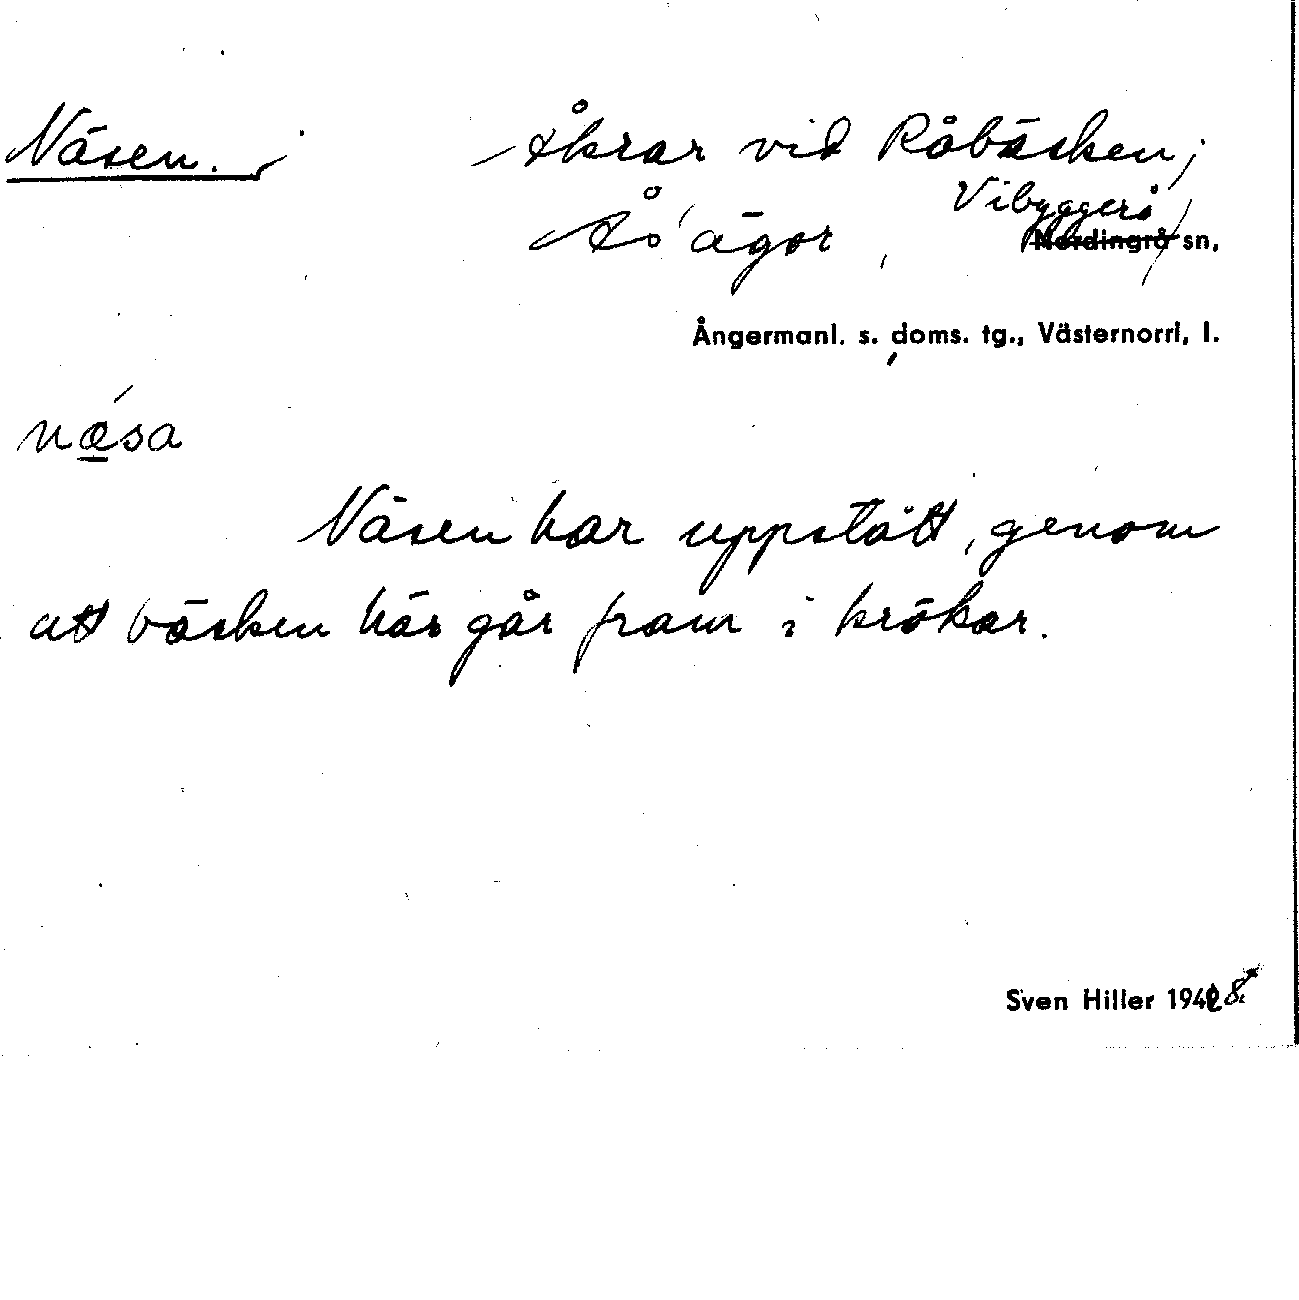 Näsen.
Åkrar vid Råbäcken,
Ås ägor, Vibyggerå
Nordingrå sn,
Ångermanl. s. doms. tg., Västernorrl, l.
næsa
Näsen har uppstått, genom
att bäcken här går fram i krökar.
Sven Hiller 1948